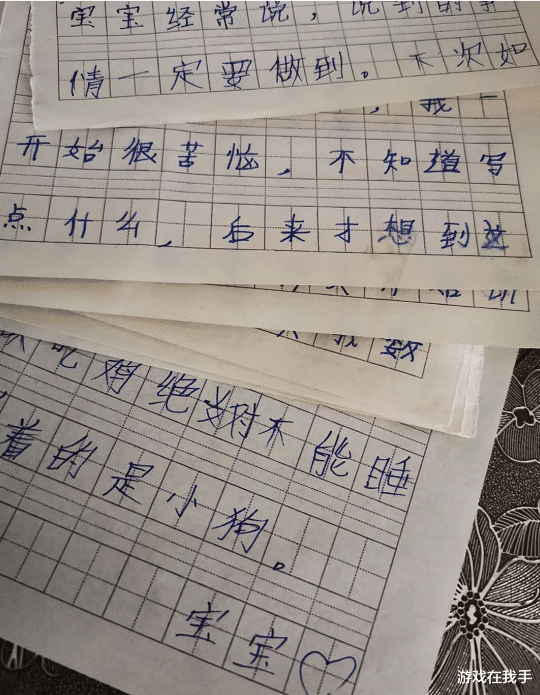 宝宝经常说，说到的事
情一定要做到。下次如
，我一
开始很苦恼，不知道写
点什么，后来才想到这
我数
吃鸡绝对不能睡
着的是小狗。
宝宝♡
游戏在我手